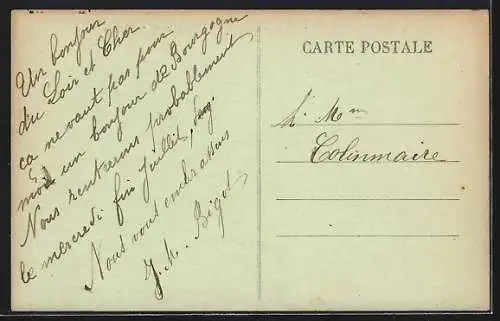 Un bonjour
du Loir et Cher
ça ne vaut pas pour
moi un bonjour de Bourgogne
Nous rentrerons probablement
le mercredi fin Juillet,
Nous vous embrassons
J. M. Bigot
CARTE POSTALE
Colinmaire